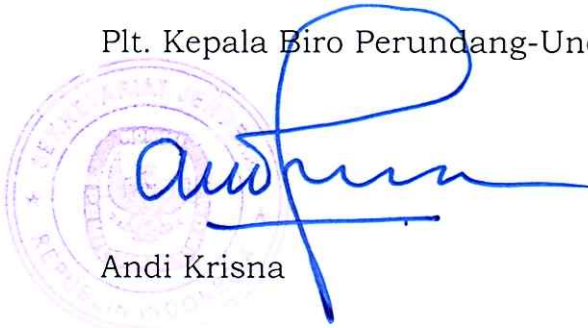 Plt. Kepala Biro Perundang-Un
Andi Krisna